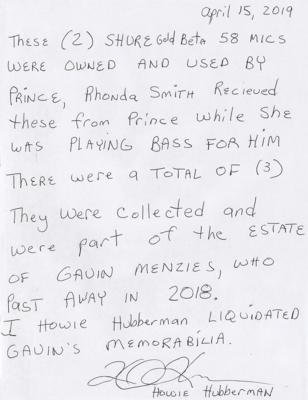 April 15, 2019
These (2) SHURE Gold Beta 58 MICS
WERE OWNED AND USED BY
PRINCE, Rhonda Smith Recieved
these from Prince while She
WAS PLAYING BASS FOR HIM
THERE were a TOTAL OF (3)
They were collected and
were part of the ESTATE
OF GAVIN MENZIES, WHO
PAST AWAY IN 2018.
I Howie Hubberman LIQUIDATED
GAVIN'S MEMORABILIA.
HOWIE HUBBERMAN